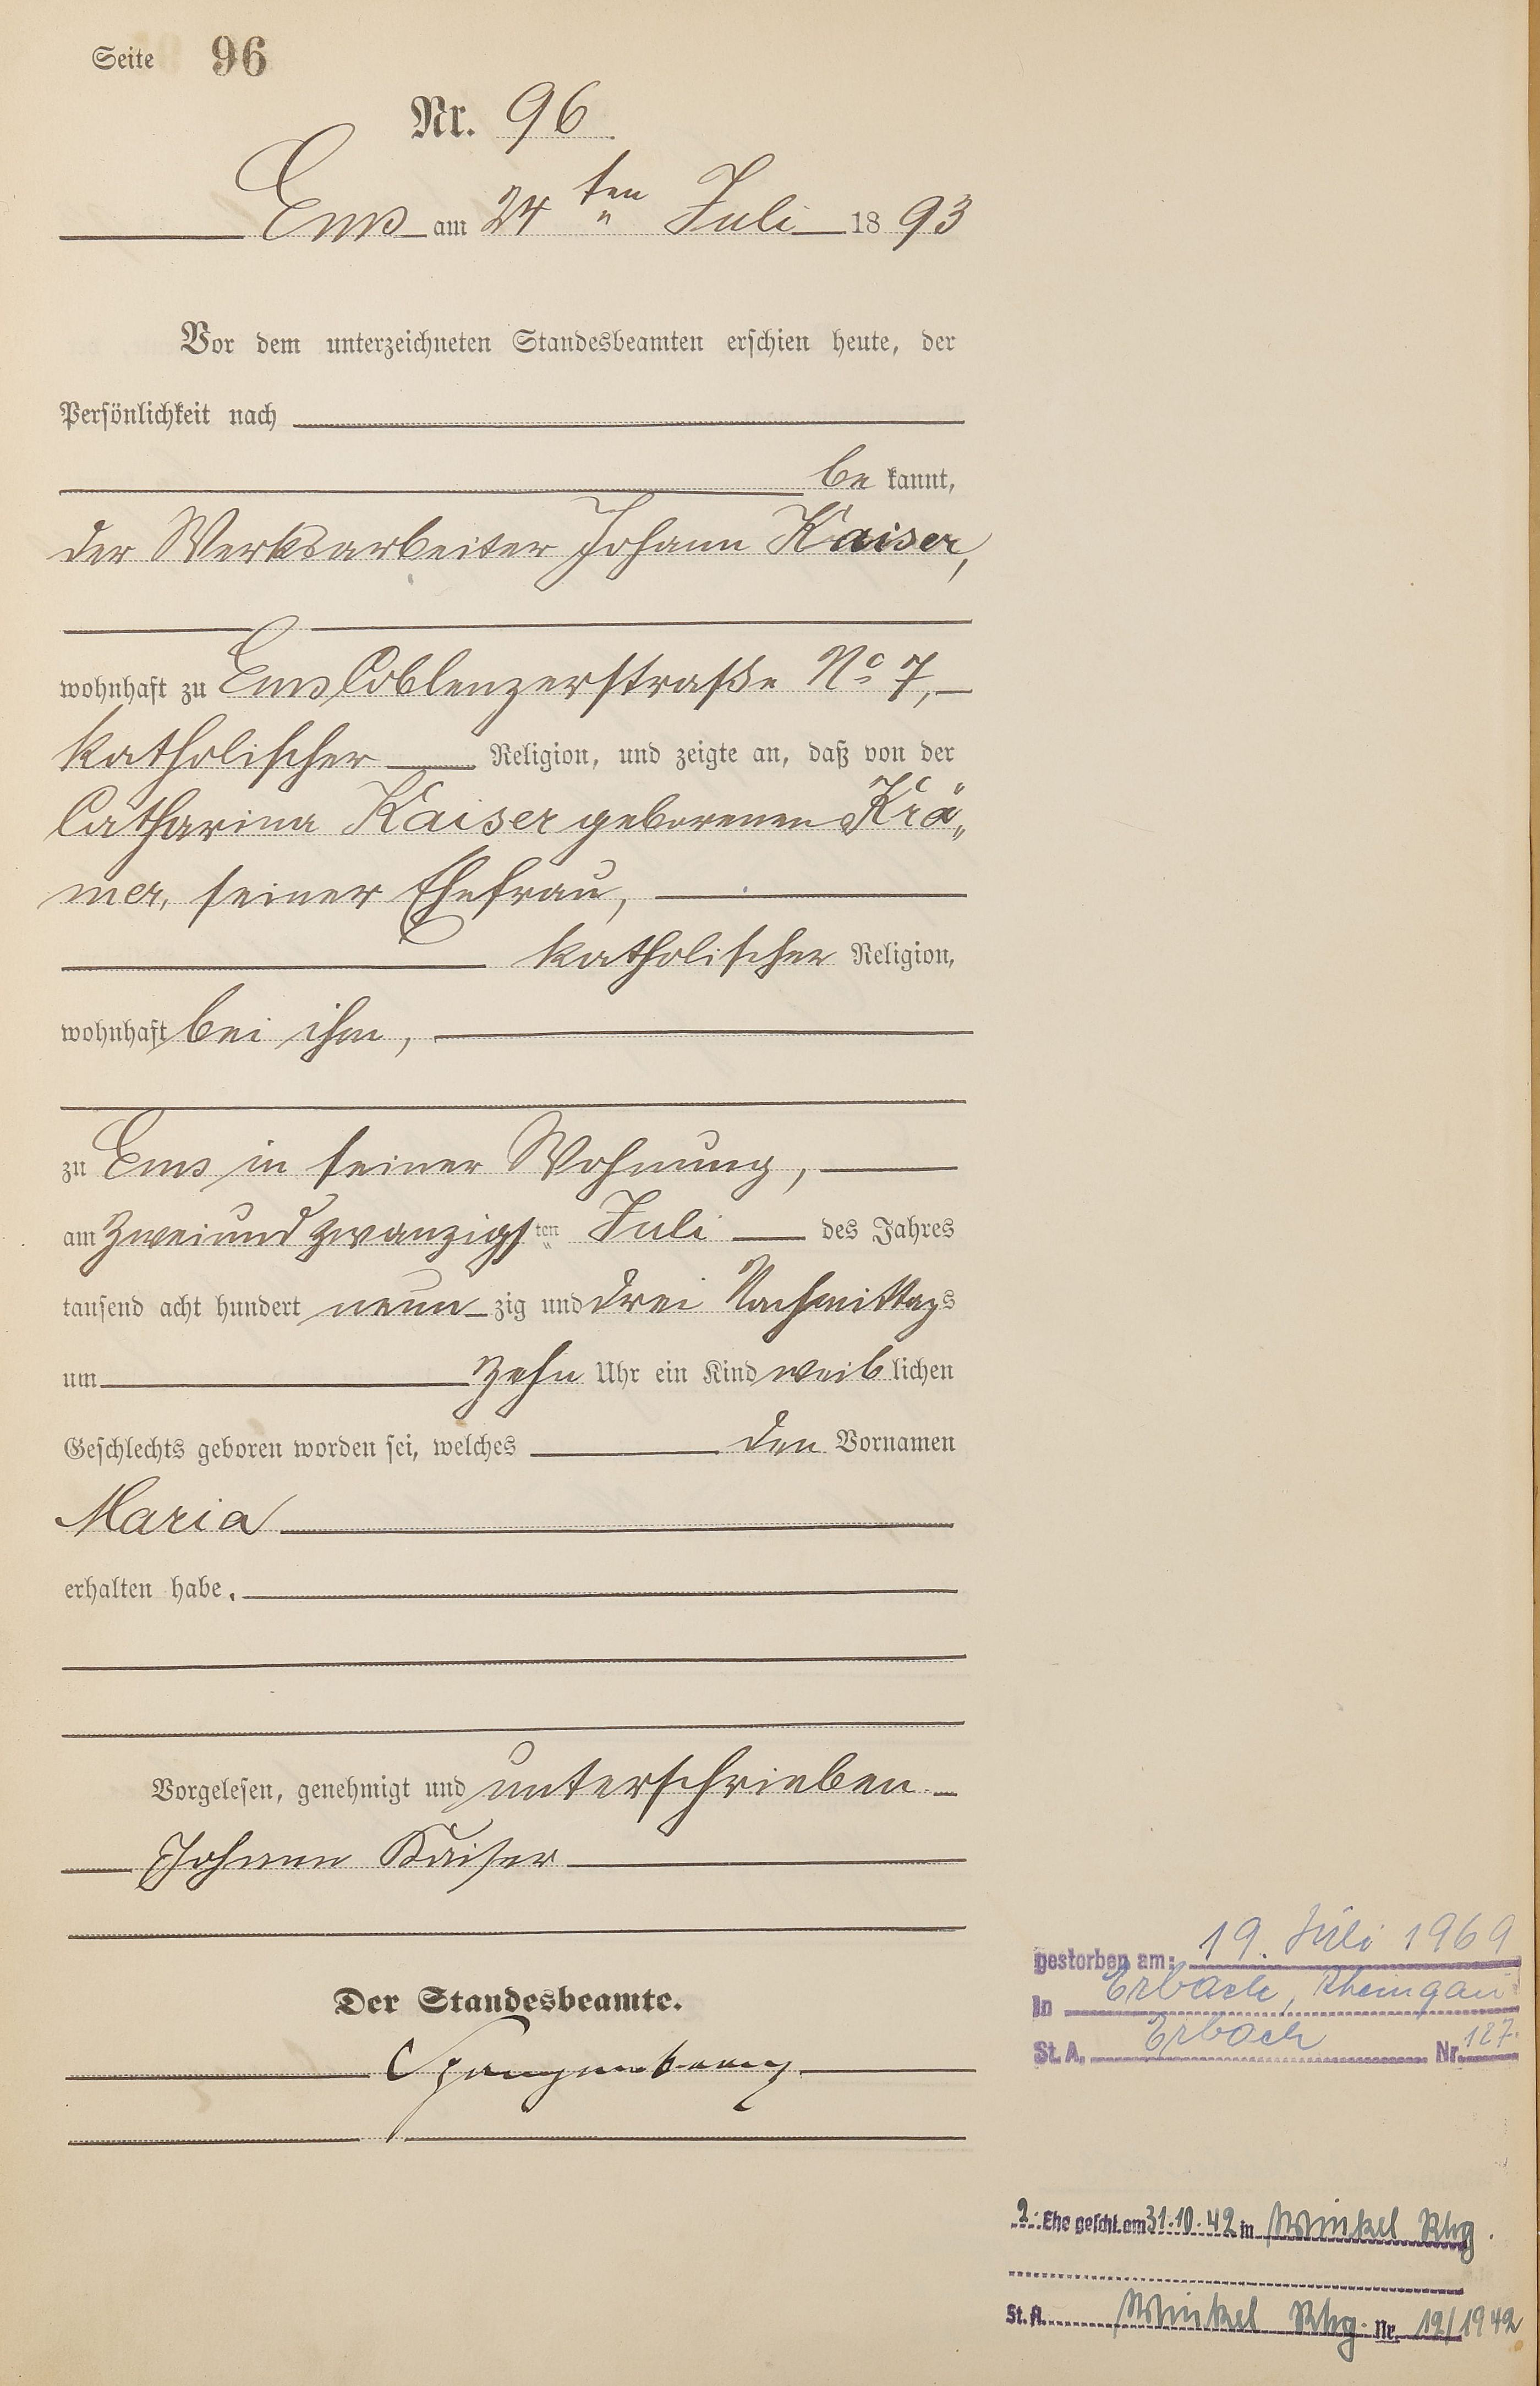 Seite 96
Nr. 96
Ems am 24ten Juli 1893
Vor dem unterzeichneten Standesbeamten erschien heute, der
Persönlichkeit nach
be kannt,
der Werksarbeiter Johann Kaiser,
wohnhaft zu Ems Coblenzerstraße No 7,
katholischer Religion, und zeigte an, daß von der
Catharina Kaiser geborenen Krä„
mer, seiner Ehefrau,
katholischer Religion,
wohnhaft bei ihm,
zu Ems in seiner Wohnung,
am zweiundzwanzigsten Juli des Jahres
tausend acht hundert neun zig und drei Nachmittags
um zehn Uhr ein Kind weiblichen
Geschlechts geboren worden sei, welches den Vornamen
Maria
erhalten habe.
Vorgelesen, genehmigt und unterschrieben
Johann Kaiser
Der Standesbeamte.
Spangenberg
gestorben am: 19. Juli 1969
In Erbach, Rheingau
St. A. Erbach Nr. 127.
2. Ehe geschl. am 31.10.42 in Winkel Rhg.
St. A. Winkel Rhg. Nr. 12/1942